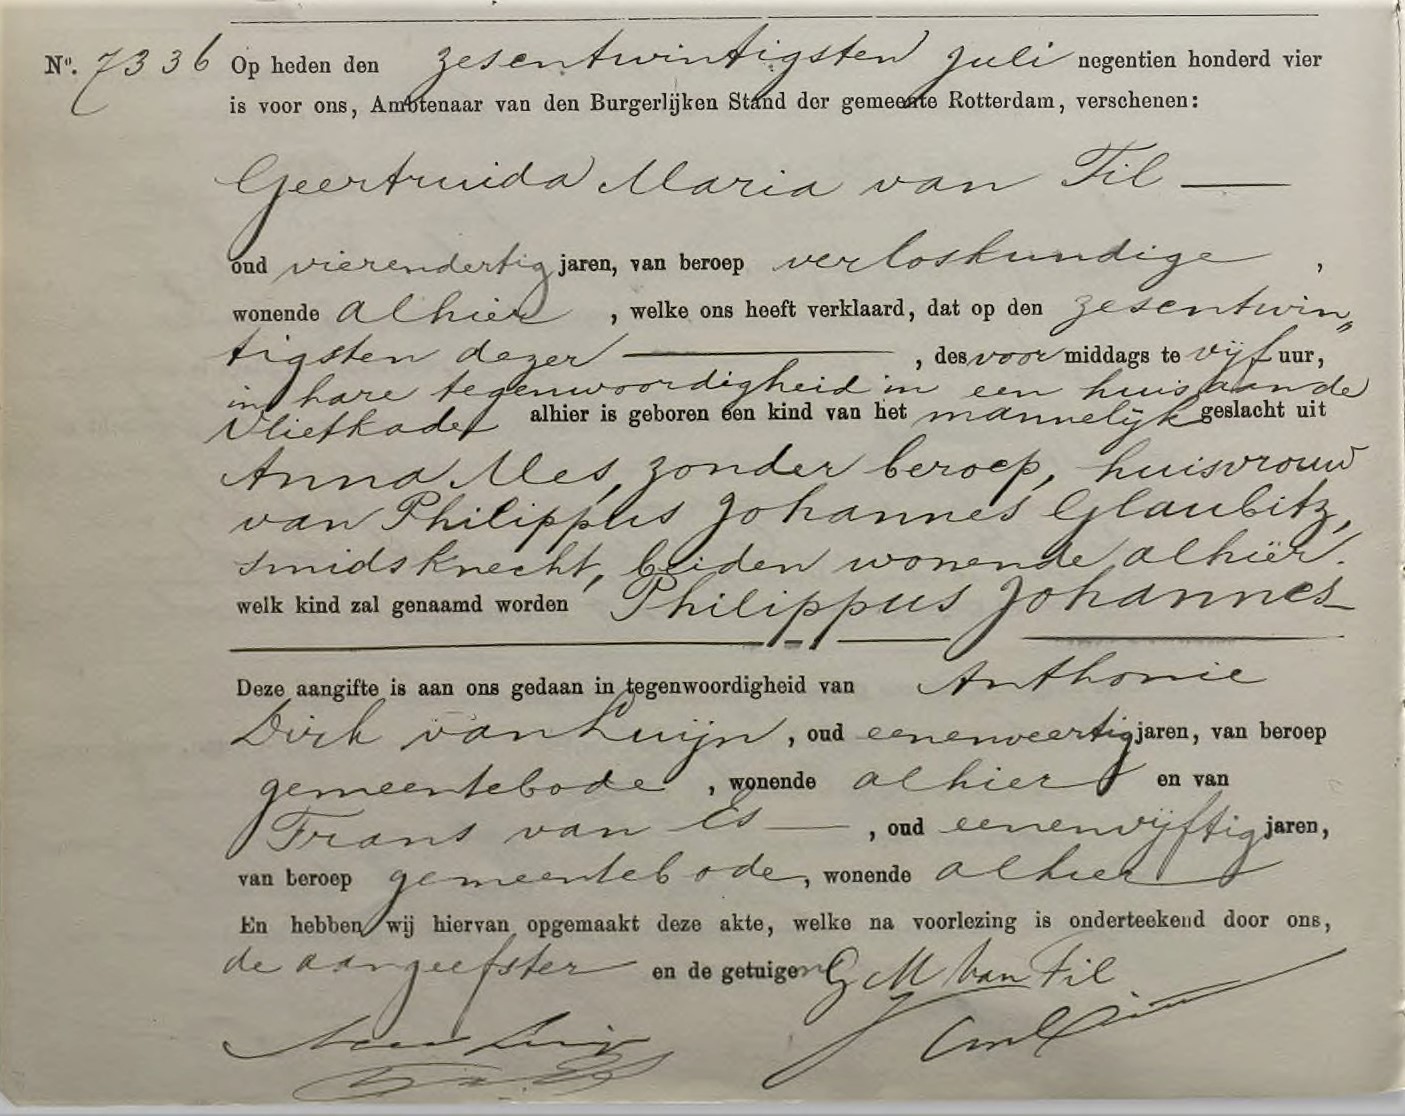 No. 7336 Op heden den zesentwintigsten Juli negentien honderd vier
is voor ons, Ambtenaar van den Burgerlijken Stand der gemeente Rotterdam, verschenen:
Geertruida Maria van Til
oud vierendertig jaren, van beroep verloskundige ,
wonende alhier , welke ons heeft verklaard, dat op den zesentwin„
tigsten dezer , des voormiddags te vijf uur,
in hare tegenwoordigheid in een huis aan de
Vlietkade alhier is geboren een kind van het mannelijk geslacht uit
Anna Mes, zonder beroep, huisvrouw
van Philippus Johannes Glaubitz,
smidsknecht, beiden wonende alhier.
welk kind zal genaamd worden Philippus Johannes
Deze aangifte is aan ons gedaan in tegenwoordigheid van Anthonie
Dirk van Luijn, oud eenenveertig jaren, van beroep
gemeentebode , wonende alhier en van
Frans van Es , oud eenenvijftig jaren,
van beroep gemeentebode, wonende alhier
En hebben wij hiervan opgemaakt deze akte, welke na voorlezing is onderteekend door ons,
de aangeefster en de getuigen G M van Til